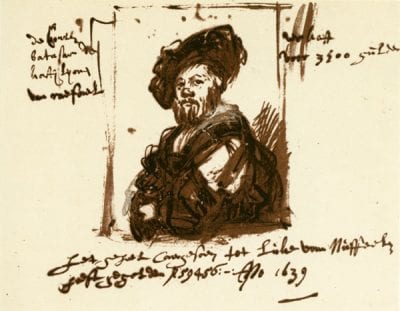 de Conte
batasar de
kastijlyone
van raefael
verkoft
voor 3500 gulden
het geheel Caergesoen tot Luke van Nuffeelen
heeft gegolden f 59456:- Ano 1639